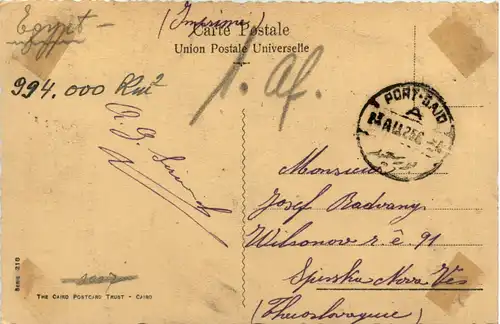 Egypt -
(Imprimé)
Carte Postale
Union Postale Universelle
994.000 Km²
1. Af.
PORT-SAID
A
Monsieur
Josef Radvany
Wilsonov r. č 91
Spisska Nova Ves
(Thecoslovaquie)
Serie 210
THE CAIRO POSTCARD TRUST - CAIRO